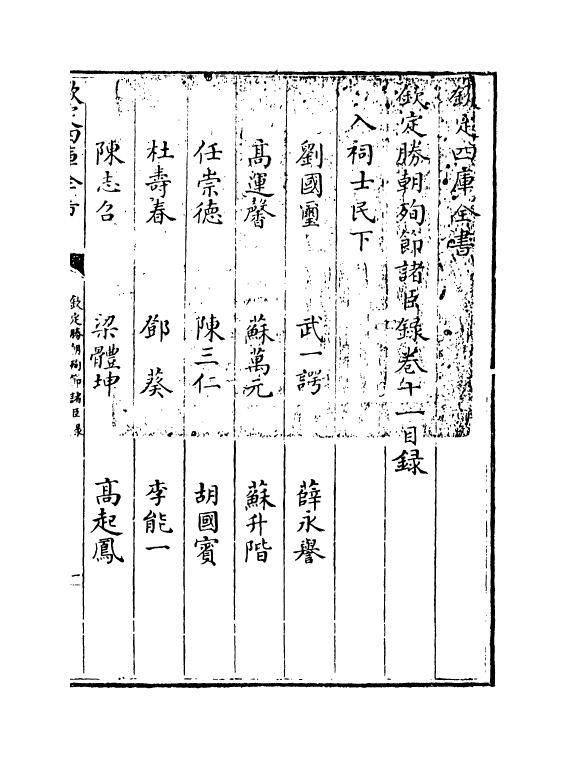 欽定四庫全書
欽定勝朝殉節諸臣録卷十一目録
入祠士民下
劉國璽 武一諤 薛永譽
髙運馨 蘇萬元 蘇升階
任崇德 陳三仁 胡國賓
杜壽春 鄧葵 李能一
陳志召 梁體坤 髙起鳳
欽定四庫全書
欽定勝朝殉節諸臣录
一